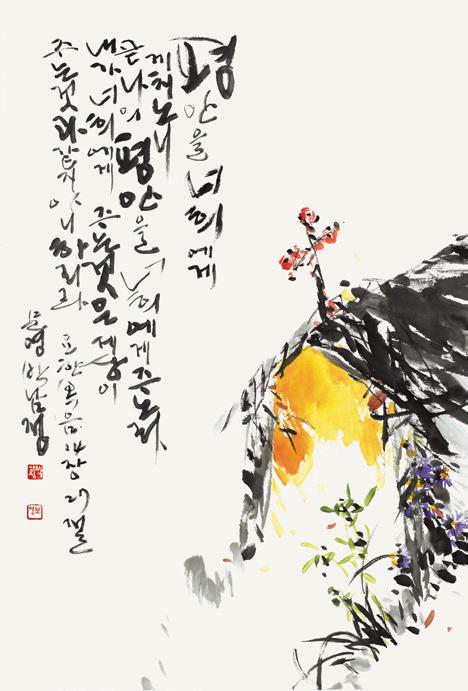 평안을 너희에게
끼치노니
곧 나의 평안을 너희에게 주노라
내가 너희에게 주는 것은 세상이
주는 것과 같지 아니하리라
요한복음 14장 27절